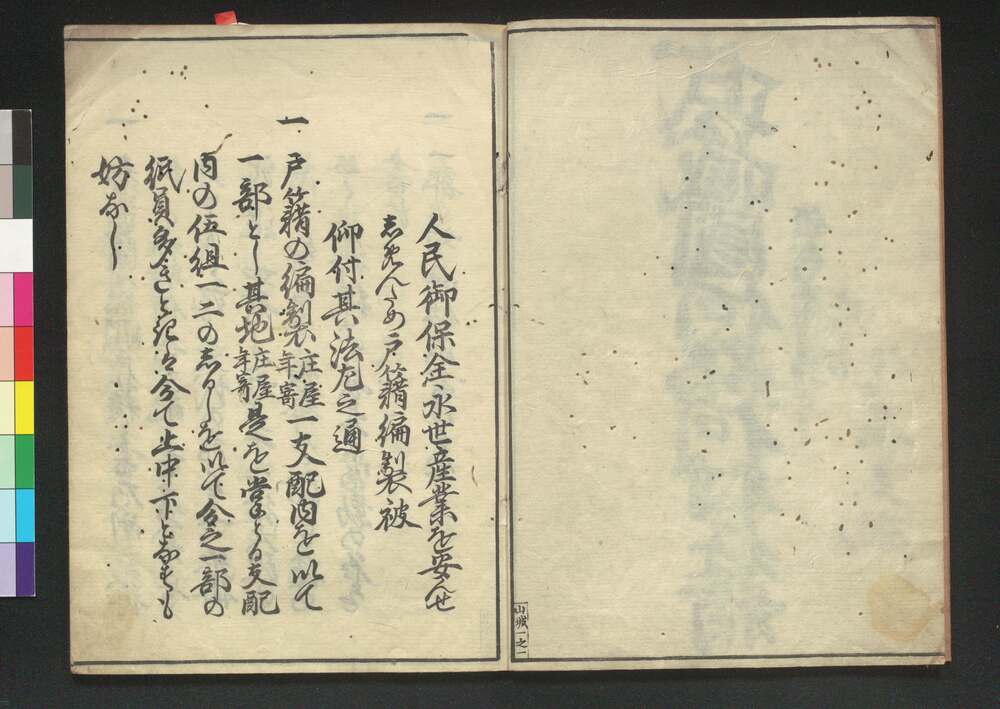 人民御保全永世産業を安んせ
志めんため戸籍編製被
仰付其法左之通
一
戸籍の編製庄屋年寄一支配内を以て
一部とし其地庄屋年寄是を掌とる支配
内の伍組一二の志るしを以て分之一部の
紙員多きときは分て上中下となすも
妨なし
山城一之一